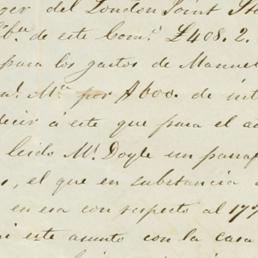 ger del London Joint St
de este Com.º £408. 2.
para los gastos de Manuel
M.ª por £600. de in
decir á este que para el a
leido M.r Doyle un parra
, el que en substancia
en esa con respecto al 177
este asunto con la casa